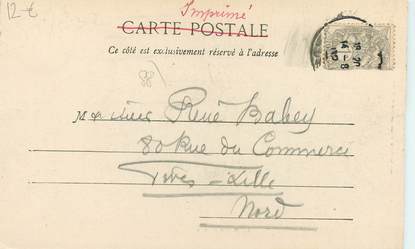 12 €
Imprimé
CARTE POSTALE
Ce côté est exclusivement réservé à l'adresse
(88)
René Babey
80 Rue du Commerce
Fives-Lille
Nord